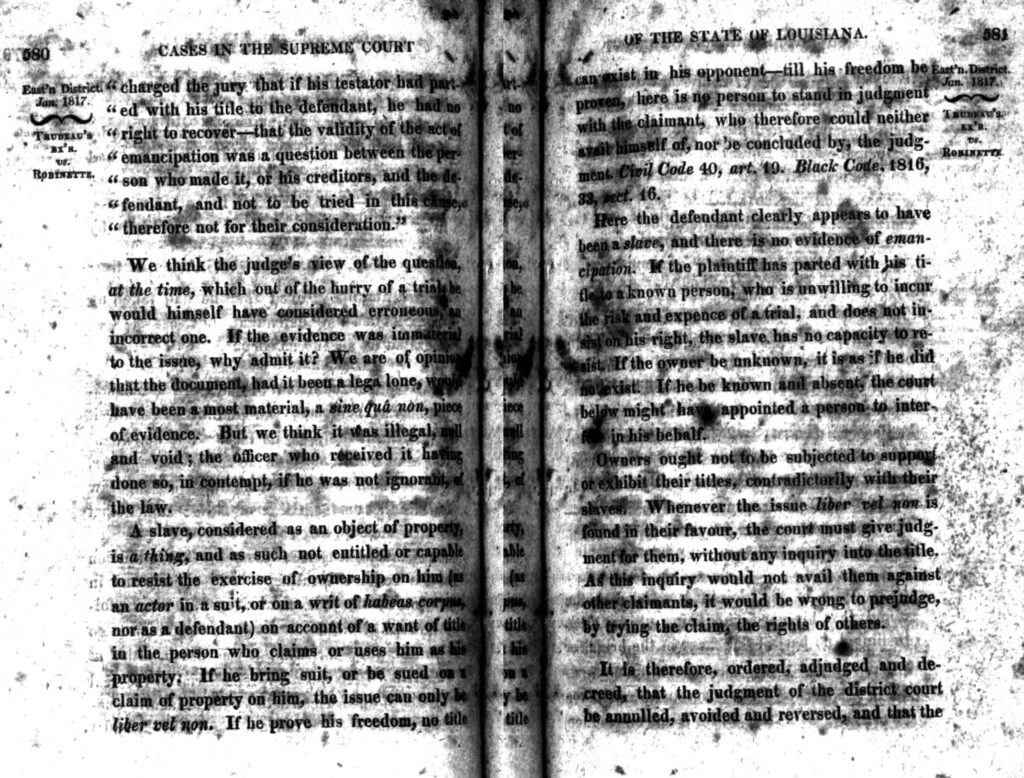 580
CASES IN THE SUPREME COURT
East'n District.
Jan. 1817.
TRUDEAU'S
EX'R.
vs.
ROBINETTE.
“charged the jury that if his testator had part-
“ed with his title to the defendant, he had no
“right to recover—that the validity of the act of
“emancipation was a question between the per-
“son who made it, or his creditors, and the de-
“fendant, and not to be tried in this cause,
“therefore not for their consideration.”
We think the judge's view of the question,
at the time, which out of the hurry of a trial he
would himself have considered erroneous, an
incorrect one. If the evidence was immaterial
to the issue, why admit it? We are of opinion
that the document, had it been a lega lone, would
have been a most material, a sine quâ non, piece
of evidence. But we think it was illegal, null
and void; the officer who received it having
done so, in contempt, if he was not ignorant, of
the law.
A slave, considered as an object of property,
is a thing, and as such not entitled or capable
to resist the exercise of ownership on him (as
an actor in a suit, or on a writ of habeas corpus,
nor as a defendant) on account of a want of title
in the person who claims or uses him as his
property. If he bring suit, or be sued on a
claim of property on him, the issue can only be
liber vel non. If he prove his freedom, no title
OF THE STATE OF LOUISIANA.
581
can exist in his opponent—till his freedom be
proven, here is no person to stand in judgment
with the claimant, who therefore could neither
avail himself of, nor be concluded by, the judg-
ment. Civil Code 40, art. 19. Black Code, 1816,
33, sect. 16.
East'n. District.
Jan. 1817.
TRUDEAU'S
EX'R.
vs.
ROBINETTE.
Here the defendant clearly appears to have
been a slave, and there is no evidence of eman-
cipation. If the plaintiff has parted with his ti-
tle to a known person, who is unwilling to incur
the risk and expence of a trial, and does not in-
sist on his right, the slave has no capacity to re-
sist. If the owner be unknown, it is as if he did
not exist. If he be known and absent, the court
below might have appointed a person to inter-
in his behalf.
Owners ought not to be subjected to support
or exhibit their titles, contradictorily with their
slaves. Whenever the issue liber vel non is
found in their favour, the court must give judg-
ment for them, without any inquiry into the title.
As this inquiry would not avail them against
other claimants, it would be wrong to prejudge,
by trying the claim, the rights of others.
It is therefore, ordered, adjudged and de-
creed, that the judgment of the district court
be annulled, avoided and reversed, and that the